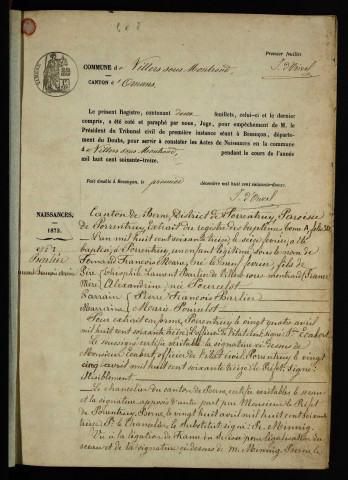 Premier feuillet
COMMUNE de Villers sous Montrond
CANTON d'Ornans
Le présent Registre, contenant deux feuillets, celui-ci et le dernier
compris, a été coté et paraphé par nous, Juge, pour empêchement de M. le
Président du Tribunal civil de première instance séant à Besançon, départe-
ment du Doubs, pour servir à constater les Actes de Naissances en la commune
de Villers sous Montrond pendant le cours de l'année
mil huit cent soixante-treize.
Fait double à Besançon, le premier décembre mil huit cent soixante-douze.
NAISSANCES.
1873.
N° 1
Barlier
Canton de Berne, District de Porrentruy, Paroisse
de Porrentruy, Extrait du registre des baptêmes, tome A, folio
L'an mil huit cent soixante treize le seize février a été
baptisé à Porrentruy, un enfant légitime sous le nom de
Fernand François Marie, né le février, fils de
Père Théophile Laurent Barlier de Villers sous montrond (France
Mère Alexandrine née Pourcelot
Parrain Pierre François Barlier
Marraine Marie Pourcelot
Pour extrait conforme, Porrentruy le vingt quatre avril
mil huit cent soixante treize. L'officier de l'état civil, signé:
Le soussigné certifie véritable la signature ci dessus de
Monsieur officier de l'état civil, Porrentruy le vingt
cinq avril mil huit cent soixante treize, le Préfet, signé:
Le chancelier du canton de Berne certifie véritables le sceau
et la signature apposés d'autre part par Monsieur le Préfet
de Porrentruy, Berne, le vingt huit avril mil huit cent soixante
treize, Pr le Chancelier, le Substitut, signé: R. Minnig.
Vu à la légation de France en Suisse pour légalisation du
sceau et de la signature ci dessus de M. Minnig, Berne le